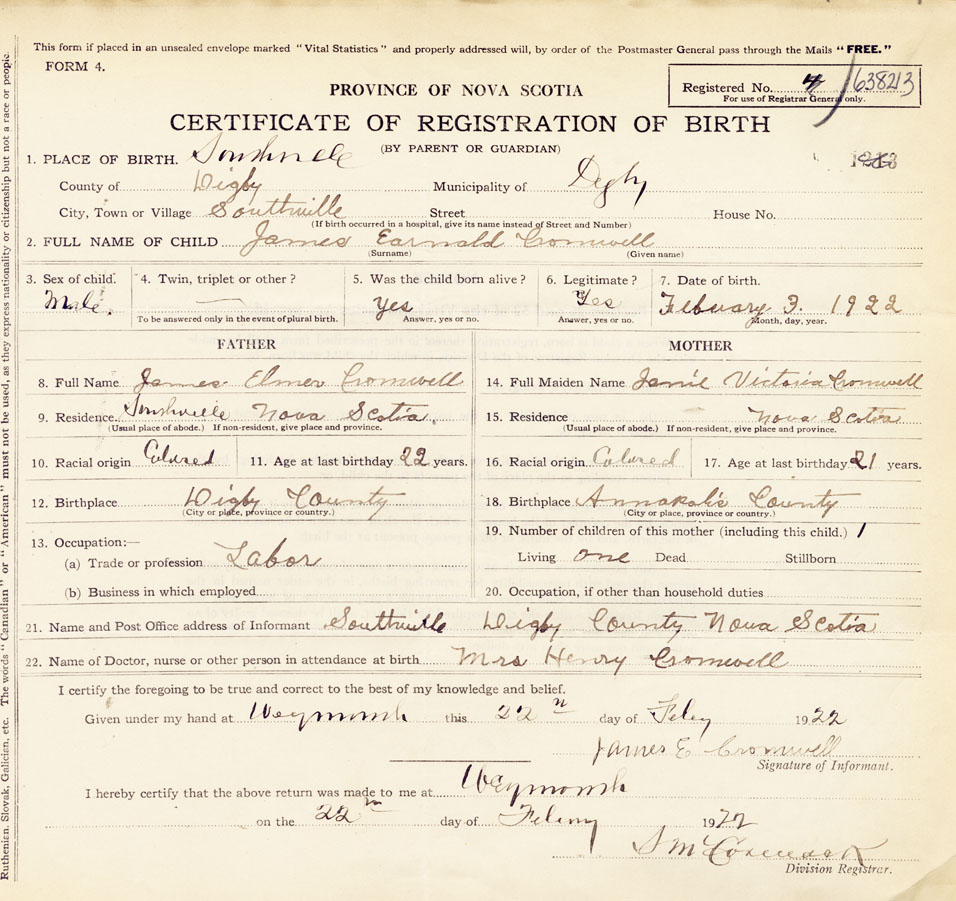 This form if placed in an unsealed envelope marked "Vital Statistics" and properly addressed will, by order of the Postmaster General pass through the Mails "FREE."
FORM 4.
Registered No. 4 638213
For use of Registrar General only.
PROVINCE OF NOVA SCOTIA
CERTIFICATE OF REGISTRATION OF BIRTH
(BY PARENT OR GUARDIAN)
1. PLACE OF BIRTH. Southville
County of Digby Municipality of Digby
City, Town or Village Southville Street House No.
(If birth occurred in a hospital, give its name instead of Street and Number)
2. FULL NAME OF CHILD James Earnald Cromwell
(Surname) (Given name)
3. Sex of child. 4. Twin, triplet or other? 5. Was the child born alive? 6. Legitimate? 7. Date of birth.
Male. — Yes Yes Febuary 3. 1922
To be answered only in the event of plural birth. Answer, yes or no. Answer, yes or no. Month, day, year.
FATHER MOTHER
8. Full Name James Elmer Cromwell 14. Full Maiden Name Janie Victoria Cromwell
9. Residence Southville Nova Scotia 15. Residence Nova Scotia
(Usual place of abode.) If non-resident, give place and province. (Usual place of abode.) If non-resident, give place and province.
10. Racial origin Colured 11. Age at last birthday 22 years. 16. Racial origin Colured 17. Age at last birthday 21 years.
12. Birthplace Digby County 18. Birthplace Annapolis County
(City or place, province or country.) (City or place, province or country.)
19. Number of children of this mother (including this child.) 1
13. Occupation:—
(a) Trade or profession Labor Living one Dead Stillborn
(b) Business in which employed 20. Occupation, if other than household duties
21. Name and Post Office address of Informant Southville Digby County Nova Scotia
22. Name of Doctor, nurse or other person in attendance at birth Mrs Henry Cromwell
I certify the foregoing to be true and correct to the best of my knowledge and belief.
Given under my hand at Weymouth this 22n day of Feby 1922
James E Cromwell
Signature of Informant.
I hereby certify that the above return was made to me at Weymouth
on the 22n day of 1922
Division Registrar.
Ruthenian, Slovak, Galician, etc. The words "Canadian" or "American" must not be used, as they express nationality or citizenship but not a race or people.